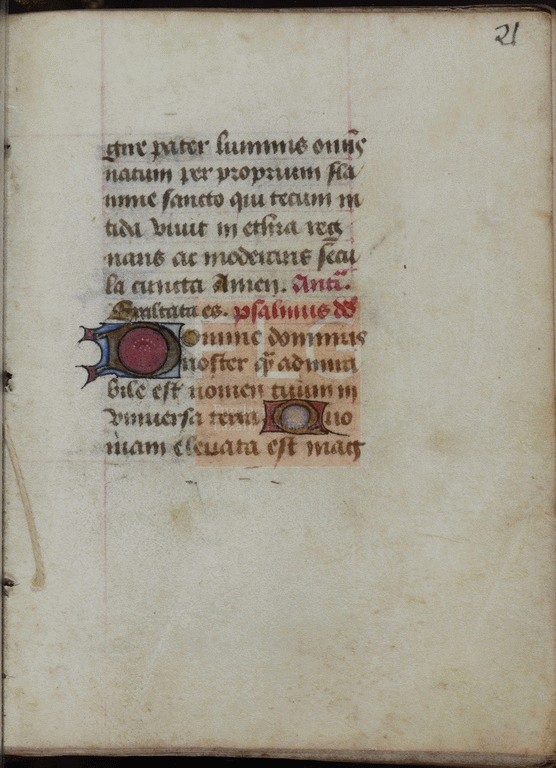 21
gne pater luminis omīs
natum per proprium fla
mine sancto qui tecum ni
tida vivit in ethra reg
nans ac moderans secu
la cuncta Amen. Anti.
Exaltata es. psalmus dd
Domine dominus
noster qͣ admira
bile est nomen tuum in
universa terra Quo
niam elevata est mag